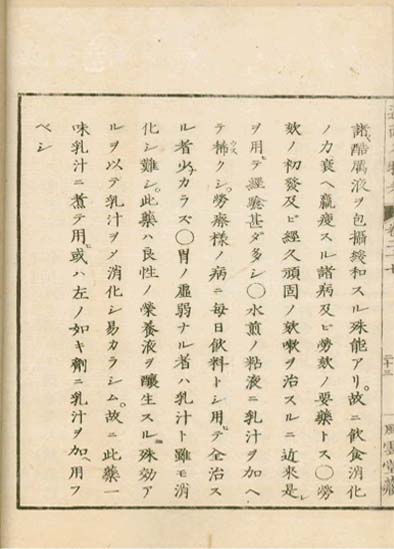 諸酷厲液ヲ包攝緩和スル殊能アリ。故ニ飲食消化
ノ力衰ヘ羸瘦スル諸病及ヒ勞欬ノ要藥トス〇勞
欬ノ初發及ヒ經久頑固ノ欬嗽ヲ治スルニ近來是レ
ヲ用テ經驗甚ダ多シ〇水煎ノ粘液ニ乳汁ヲ加ヘ
テ稀ウスクシ。勞瘵樣ノ病ニ毎日飲料トシ用ヒテ全治ス
ル者少カラズ〇胃ノ虛弱ナル者ハ乳汁ト雖モ消
化シ難シ。此藥ハ良性ノ榮養液ヲ釀生スル殊効ア
ルヲ以テ乳汁ヲメ消化シ易カラシム。故ニ此藥一
味乳汁ニ煮テ用ヒ或ハ左ノ如キ劑ニ乳汁ヲ加ヘ用フ
ベシ
二十三
風雲堂藏